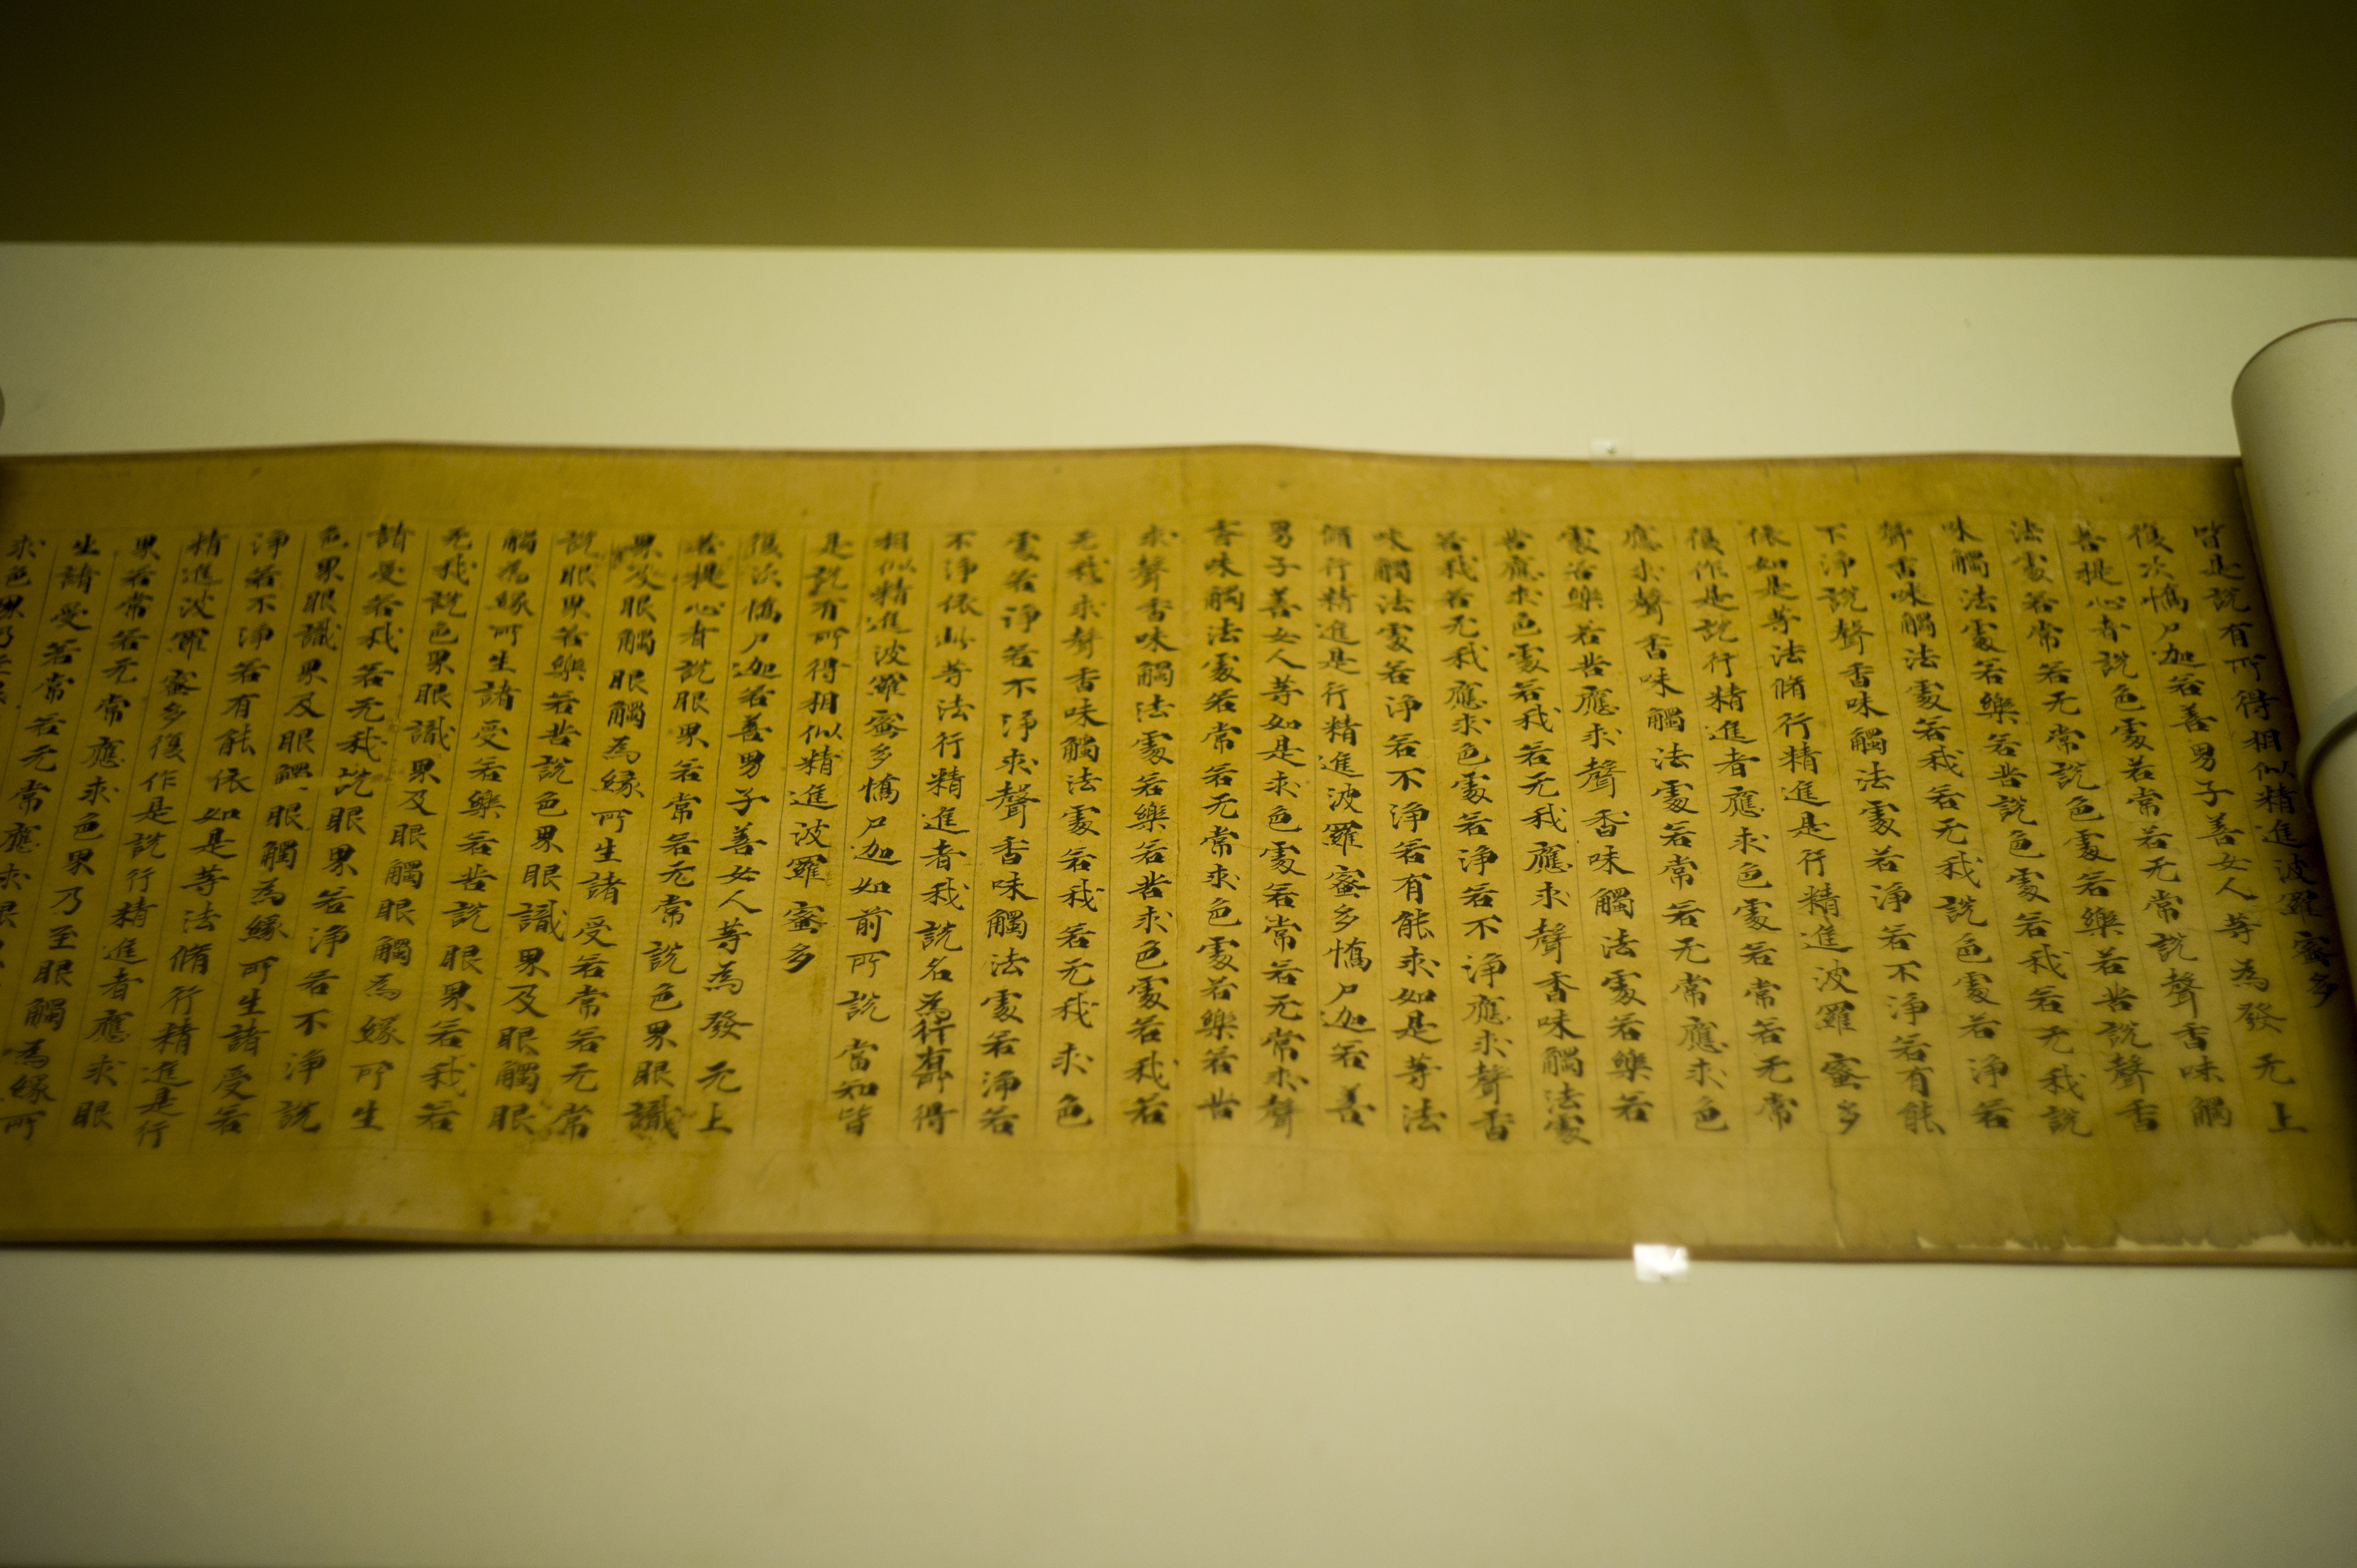 皆是說有所得相似精進波羅蜜多
復次憍尸迦若善男子善女人等為發无上
菩提心者說色處若常若无常說聲香味觸
法處若常若无常說色處若樂若苦說聲香
味觸法處若樂若苦說色處若我若无我說
聲香味觸法處若我若无我說色處若淨若
不淨說聲香味觸法處若淨若不淨若有能
依如是等法脩行精進是行精進波羅蜜多
復作是說行精進者應求色處若常若无常
應求聲香味觸法處若常若无常應求色
處若樂若苦應求聲香味觸法處若樂若
苦應求色處若我若无我應求聲香味觸法處
若我若无我應求色處若淨若不淨應求聲香
味觸法處若淨若不淨若有能求如是等法
脩行精進是行精進波羅蜜多憍尸迦若善
男子善女人等如是求色處若常若无常求聲
香味觸法處若常若无常求色處若樂若苦
求聲香味觸法處若樂若苦求色處若我若
无我求聲香味觸法處若我若无我求色
處若淨若不淨求聲香味觸法處若淨若
不淨依此等法行精進者我說名為行有所得
相似精進波羅蜜多憍尸迦如前所說當知皆
是說有所得相似精進波羅蜜多
復次憍尸迦若善男子善女人等為發无上
菩提心者說眼界若常若无常說色界眼識
界及眼觸眼觸為緣所生諸受若常若无常
說眼界若樂若苦說色界眼識界及眼觸眼
觸為緣所生諸受若樂若苦說眼界若我若
无我說色界眼識界及眼觸眼觸為緣所生
諸受若我若无我說眼界若淨若不淨說
色界眼識界及眼觸眼觸為緣所生諸受若
淨若不淨若有能依如是等法脩行精進是行
精進波羅蜜多復作是說行精進者應求眼
界若常若无常應求色界乃至眼觸為緣所
生諸受若常若无常應求眼
求色界乃至